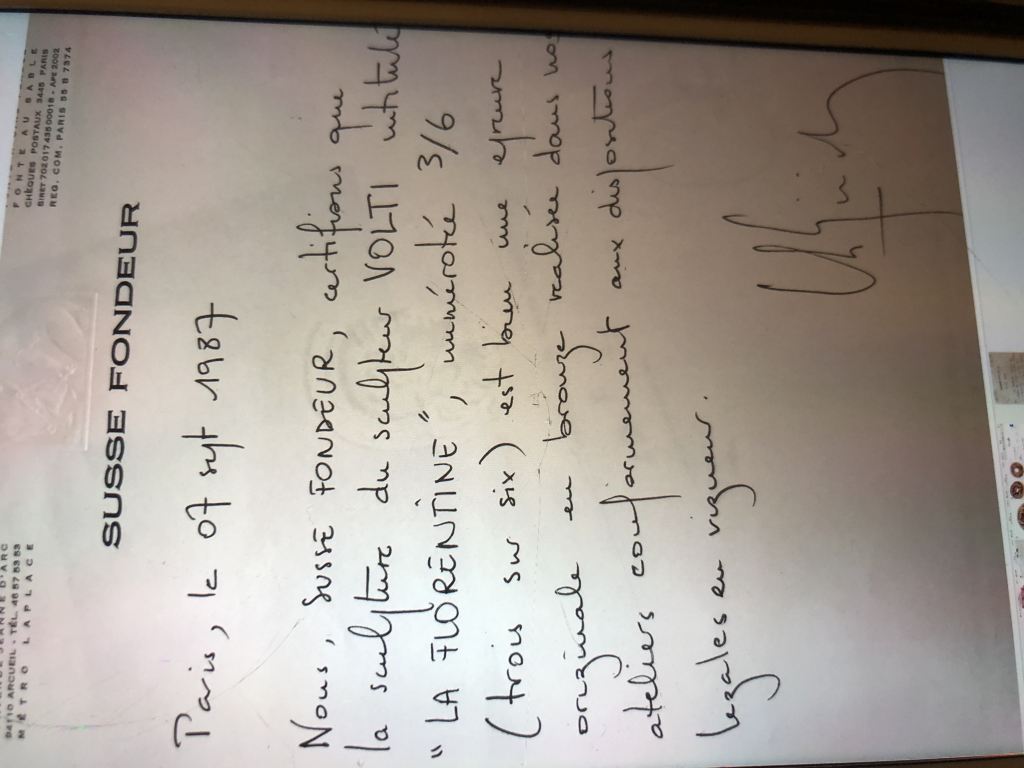 JEANNE D'ARC
94110 ARCUEIL - TÉL. 46 57 53 53
MÉTRO LAPLACE
FONTE AU SABLE
CHÈQUES POSTAUX 3445 PARIS
SIRET 702017438 00018 - APE 2002
REG. COM. PARIS 55 B 7374
SUSSE FONDEUR
Paris, le 07 sept 1987
Nous, SUSSE FONDEUR, certifions que
la sculpture du sculpteur VOLTI intitulé
"LA FLORENTINE", numérotée 3/6
(trois sur six) est bien une épreuve
originale en bronze réalisée dans nos
ateliers conformément aux dispositions
légales en vigueur.